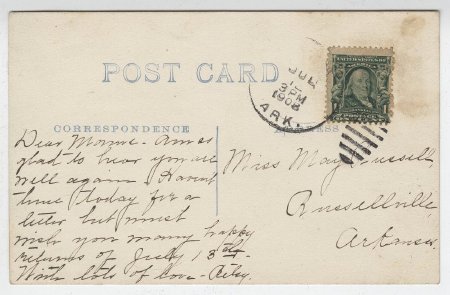 POST CARD
JUL
1
3 PM
1908
ARK.
CORRESPONDENCE
ADDRESS
Dear Mayme - Am so
glad to hear you are
well again. Haven't
time today for a
letter but must
wish you many happy
returns of July 13th.
With lots of love -
Miss May Russell
Russellville,
Arkansas.